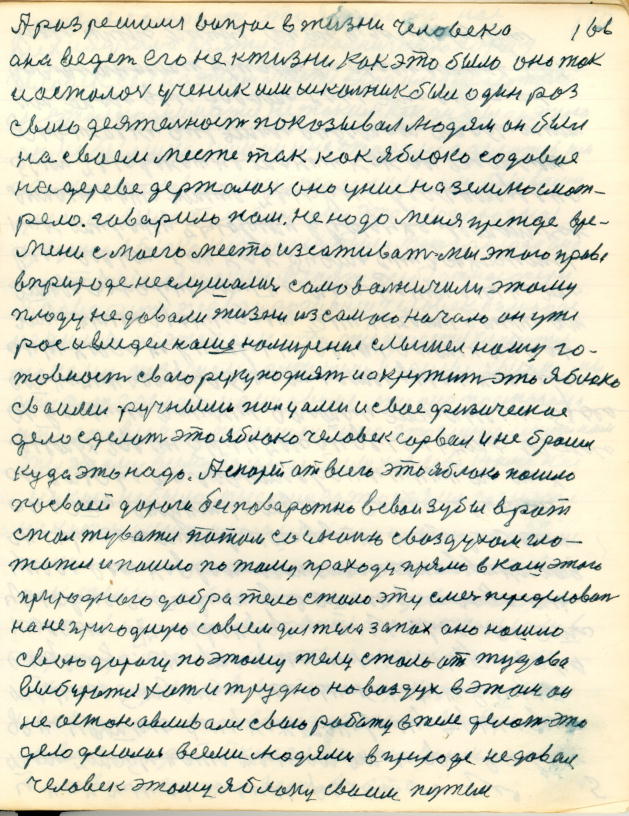 А разрешили вапрос в жизни человека 166
ана ведет его не к жизни как это было оно так
и осталось ученик или школник был один раз
сваю деятелност показывал людям он был
на своем месте так как яблоко садовое
на дереве держалось оно уние на землю смот-
рело. гаварило нам. не надо меня прежде вре-
мени с моего место изсаживат мы этого права
в природе неслушались самоволничили этому
плоду не довали жизни из самого начало он уже
рос и видел наше намирение слышел нашу го-
товност сваю руку поднят и окрутит это яблоко
своими ручными палцами и свое физическое
дело сделат это яблоко человек сорвал и не бросил
куда это надо. А скорей от всего это яблоко пошло
по своей дороги беповаротно в свои зубы в рот
стал жувати потом со слюною с воздухом гло-
тати и пошло по тому праходу прямо в кош этого
природного добра тело стало эту смес переделоват
на не пригодную совсем для тела запах оно нашло
свою дорогу по этому телу стало от тудова
выбирати хоть и трудно но воздух в этом он
не останавливал сваю работу в теле делат это
дело делалось всеми людями в природе недовал
человек этому яблоку своим путем